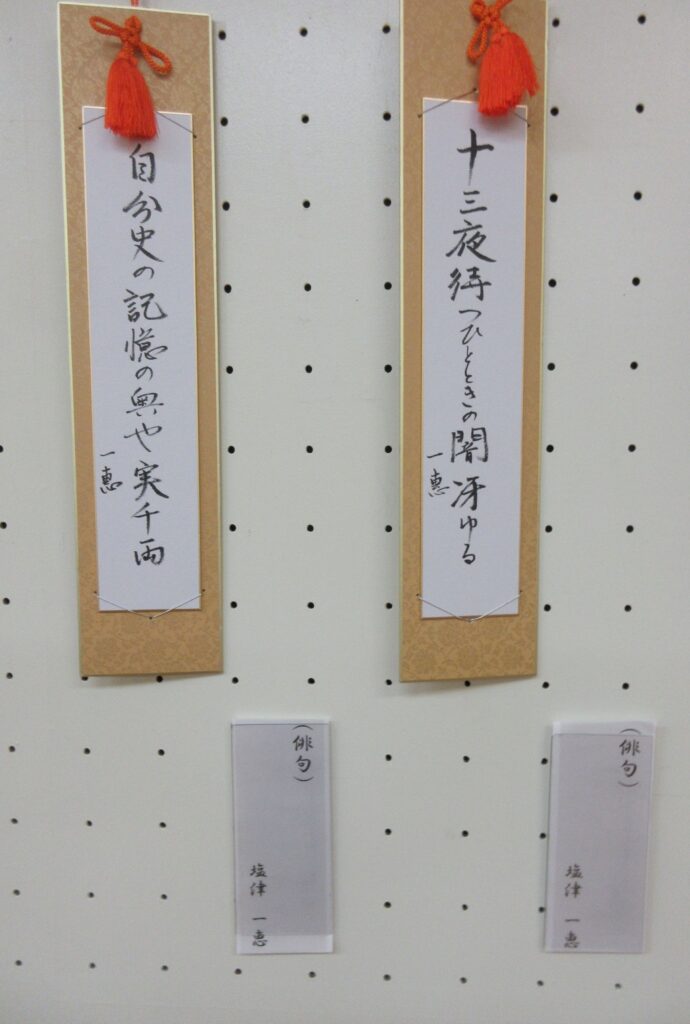 十三夜待つひとときの闇冴ゆる
一恵
自分史の記憶の奥や実千両
一恵
（俳句）
塩津 一恵
（俳句）
塩津 一恵